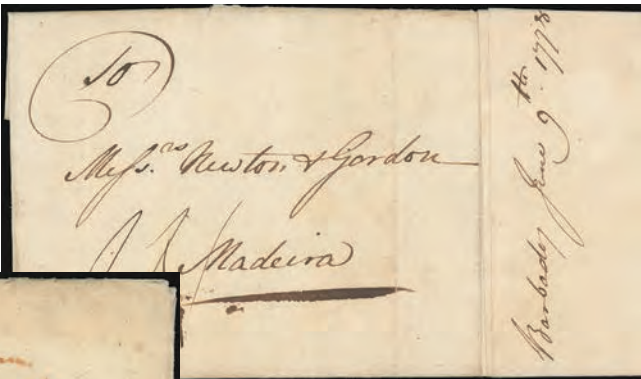 To
Messrs Newton & Gordon
Madeira
Barbados June 9th 1778